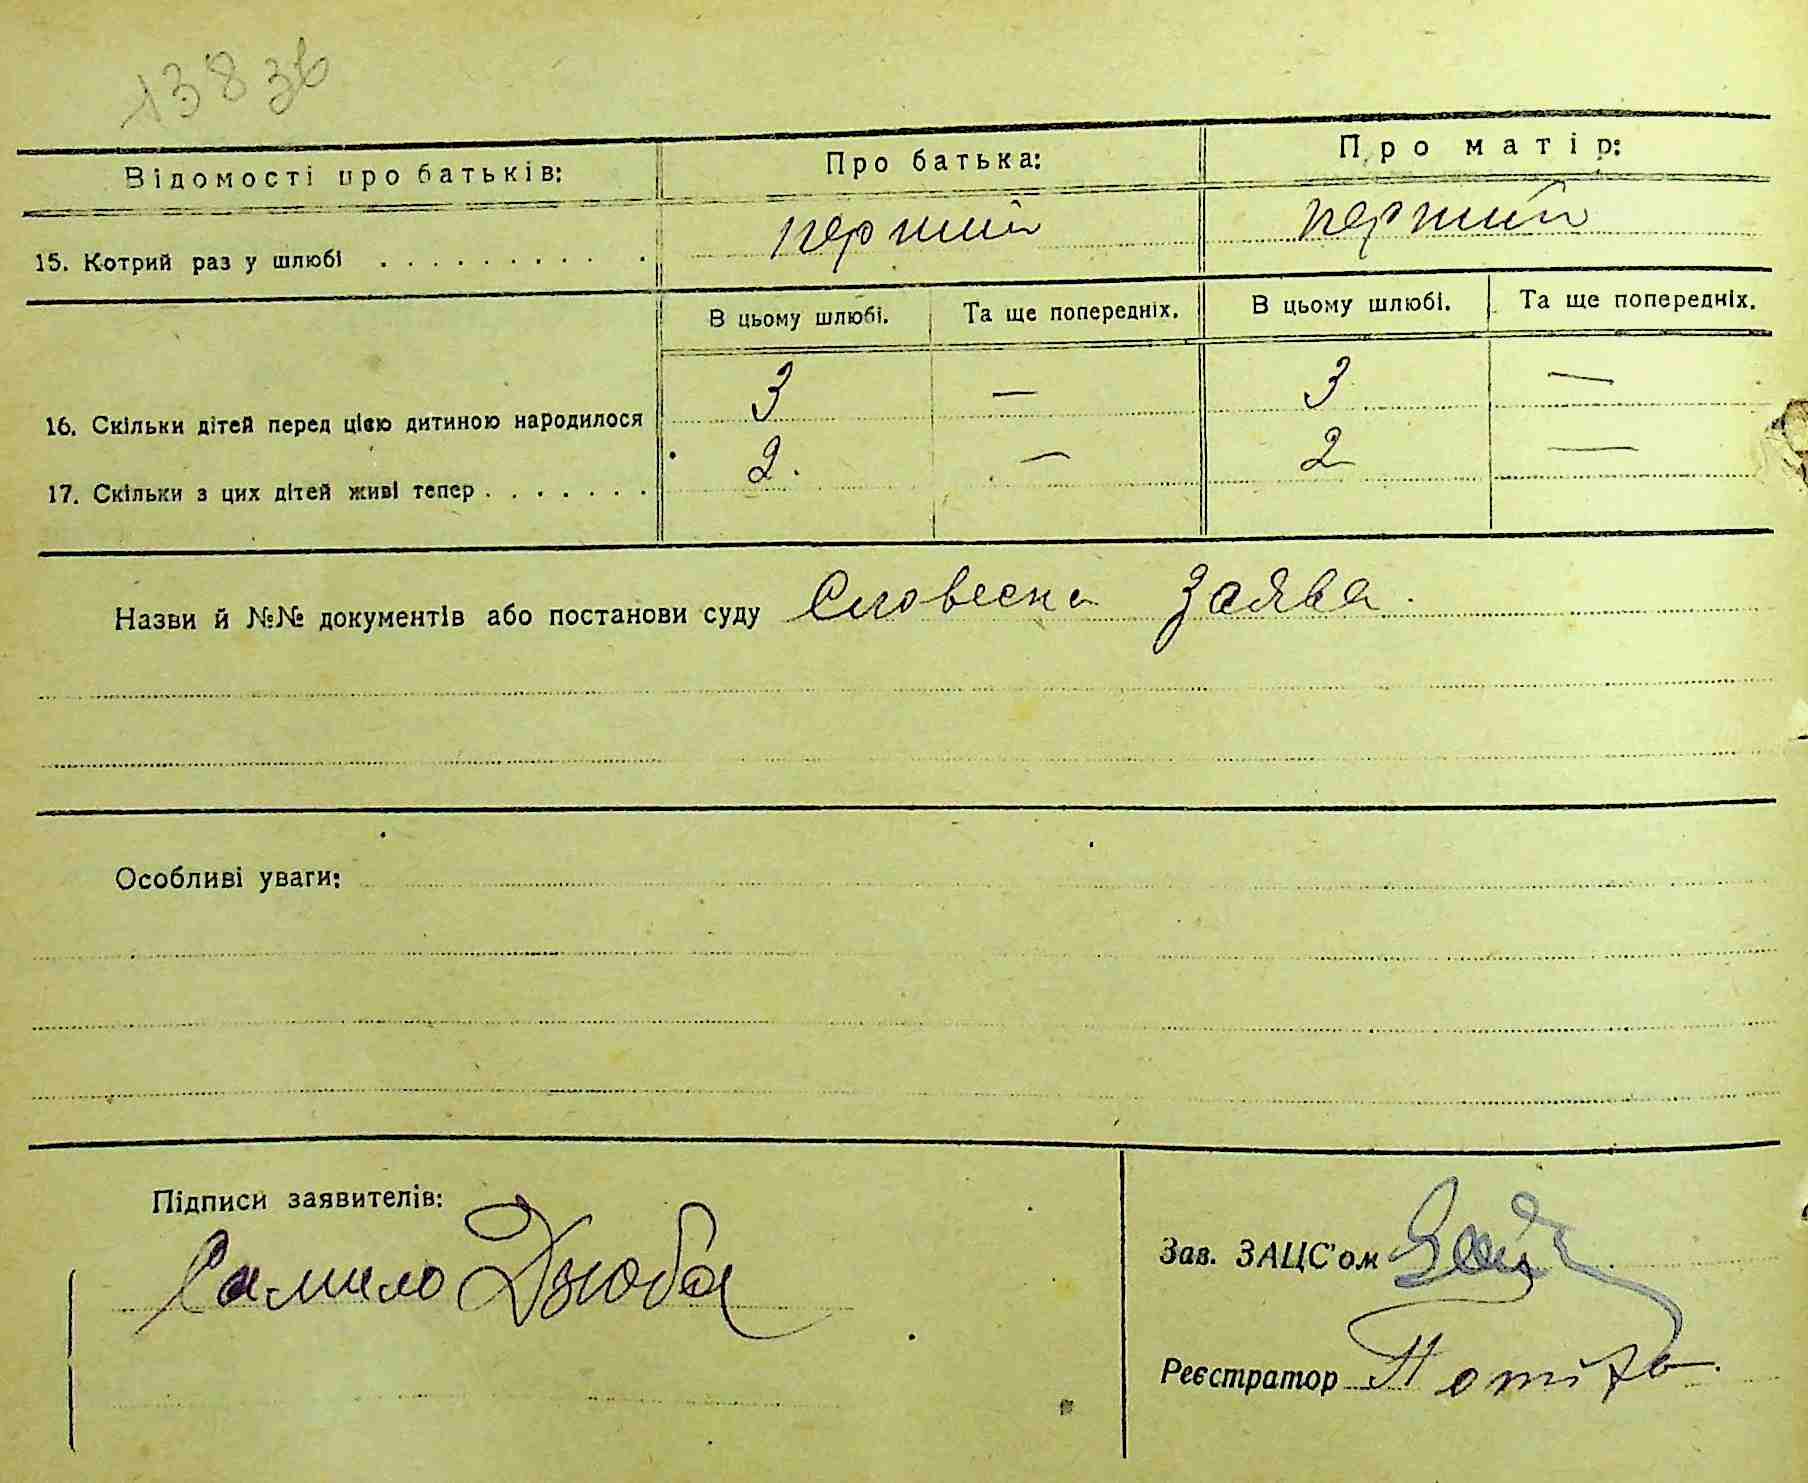 138 зв
Відомості про батьків: Про батька: Про матір:
15. Котрий раз у шлюбі . . . . . . . . . . перший перший
В цьому шлюбі. Та ще попередніх. В цьому шлюбі. Та ще попередніх.
16. Скільки дітей перед цією дитиною народилося 3 — 3 —
17. Скільки з цих дітей живі тепер . . . . . . . 2. — 2 —
Назви й №№ документів або постанови суду Словесна заява.
Особливі уваги:
Підписи заявителів:
Самило Дзюба
Зав. ЗАЦС'ом
Реєстратор